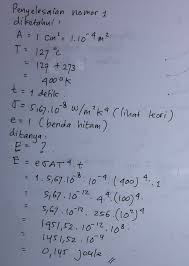 Penyelesaian nomor 1
diketahui :
A = 1 cm² = 1.10⁻⁴ m²
T = 127 °C
= 127 + 273
= 400°K
t = 1 detik
σ = 5,67.10⁻⁸ W/m²K⁴ (lihat teori)
e = 1 (benda hitam)
ditanya :
E = ?
E = eσAT⁴ t
= 1. 5,67.10⁻⁸. 10⁻⁴. (400)⁴. 1
= 5,67. 10⁻¹². 4⁴. (100)⁴
= 5,67. 10⁻¹². 256. (10²)⁴
= 1451,52. 10⁻¹². 10⁸
= 1451,52. 10⁻⁴
= 0,145 joule